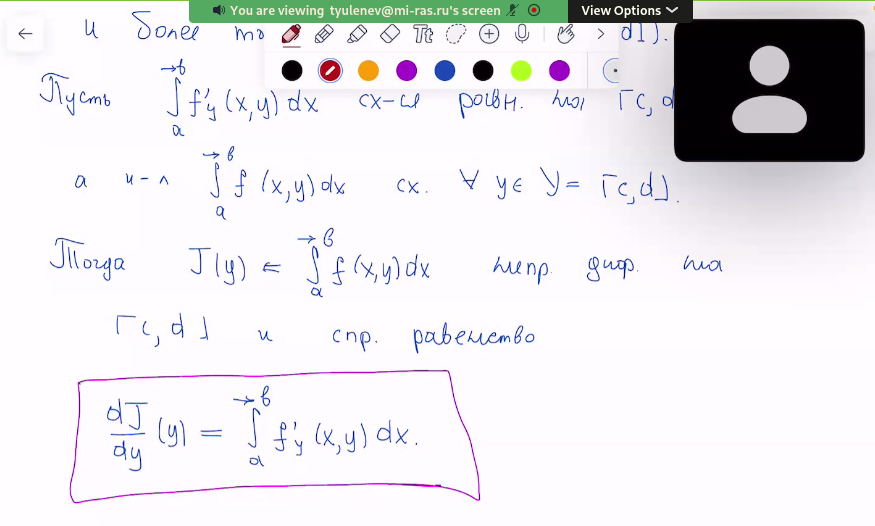 You are viewing tyulenev@mi-ras.ru's screen View Options
и более то d]).
Tt
Пусть ∫ₐ^{→b} f'_y (x,y) dx сх-ся равн. на [c, d
а и-л ∫ₐ^{→b} f (x,y) dx сх. ∀ y ∈ Y = [c,d].
Тогда J(y) = ∫ₐ^{→b} f (x,y) dx непр. диф. на
[c, d] и спр. равенство
dJ/dy (y) = ∫ₐ^{→b} f'_y (x,y) dx.